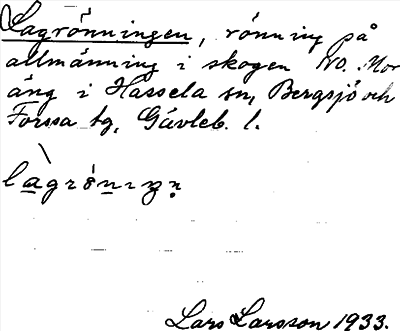 Lagrönningen, rönning på
allmänning i skogen NO. Mor
äng i Hassela sn, Bergsjö och
Forssa tg, Gävleb. l.
lagröniŋn
Lars Larsson 1933.